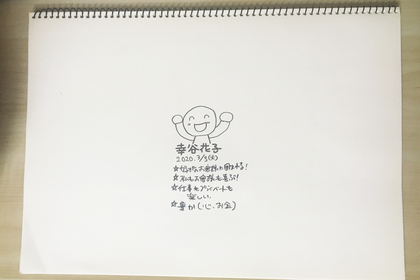 幸谷花子
2020.3/3(火)
☆好きなお客様に囲まれる!
☆私もお客様も喜ぶ!
☆仕事もプライベートも
楽しい
☆豊か(心、お金)